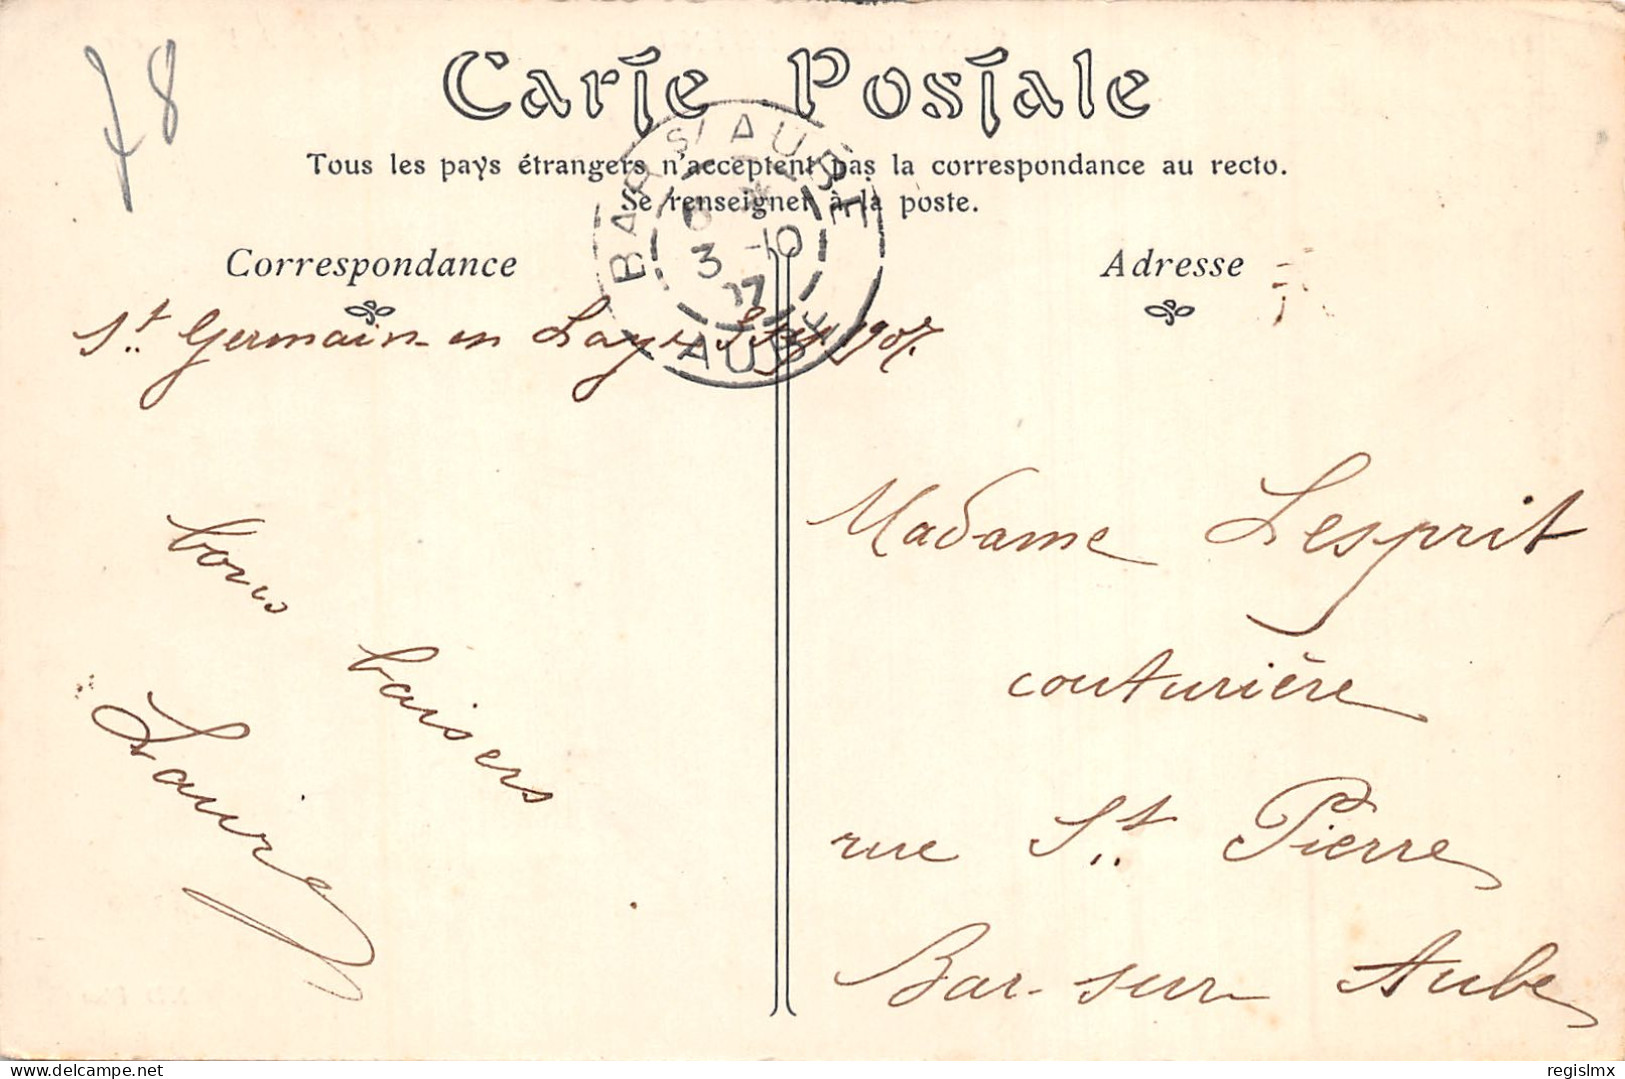 78
Carte Postale
Tous les pays étrangers n'acceptent pas la correspondance au recto.
Se renseigner à la poste.
Correspondance
Adresse
BAR-S/AUBE
3 -10
07
AUBE
St. Germain-en Laye 1907.
bons
baisers
Laure
Madame Lesprit
couturière
rue St. Pierre
Bar-sur Aube
www.delcampe.net
regislmx